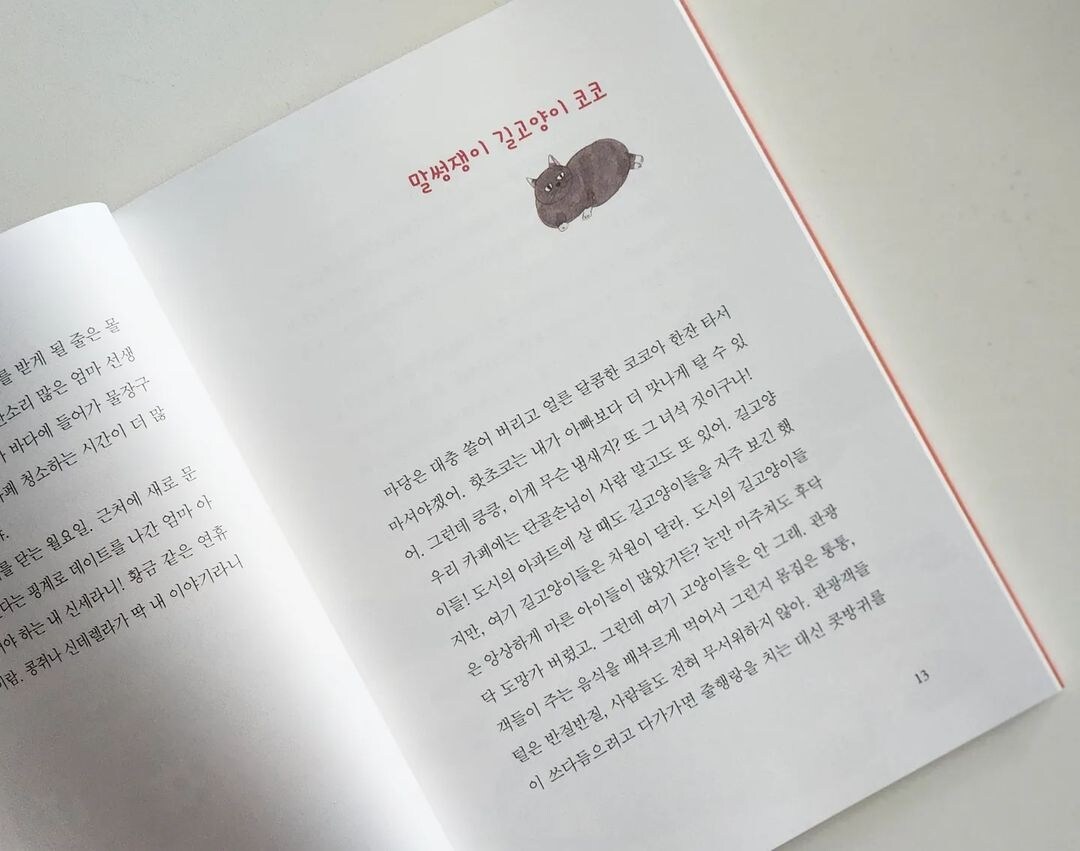 를 받게 될 줄은 몰
잔소리 많은 엄마 선생
바다에 들어가 물장구
청소하는 시간이 더 많
를 닫는 월요일. 근처에 새로 문
다는 핑계로 데이트를 나간 엄마 아
야 하는 내 신세라니! 황금 같은 연휴
이람. 콩쥐나 신데렐라가 딱 내 이야기라니
말썽쟁이 길고양이 코코
마당은 대충 쓸어 버리고 얼른 달콤한 코코아 한잔 타서
마셔야겠어. 핫초코는 내가 아빠보다 더 맛나게 탈 수 있
어. 그런데 킁킁, 이게 무슨 냄새지? 또 그 녀석 짓이구나!
우리 카페에는 단골손님이 사람 말고도 또 있어. 길고양
이들! 도시의 아파트에 살 때도 길고양이들을 자주 보긴 했
지만, 여기 길고양이들은 차원이 달라. 도시의 길고양이들
은 앙상하게 마른 아이들이 많았거든? 눈만 마주쳐도 후닥
닥 도망가 버렸고. 그런데 여기 고양이들은 안 그래. 관광
객들이 주는 음식을 배부르게 먹어서 그런지 몸집은 통통,
털은 반질반질, 사람들도 전혀 무서워하지 않아. 관광객들
이 쓰다듬으려고 다가가면 줄행랑을 치는 대신 콧방귀를
13